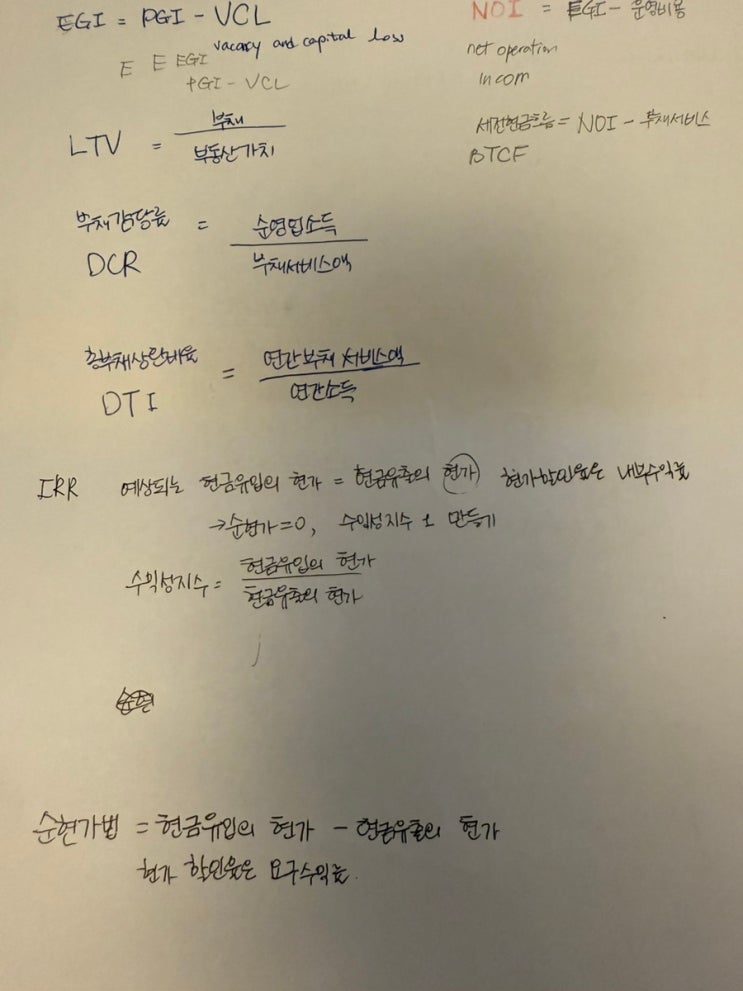 EGI = PGI - VCL
vacancy and capital loss
E E EGI
PGI - VCL
NOI = EGI - 운영비용
net operation
incom
LTV = 부채 / 부동산가치
세전현금흐름 = NOI - 부채서비스
BTCF
부채감당률 = 순영업소득 / 부채서비스액
DCR
총부채상환비율 = 연간부채 서비스액 / 연간소득
DTI
IRR 예상되는 현금유입의 현가 = 현금유출의 현가 현가할인율은 내부수익률
→순현가=0, 수익성지수 1 만들기
수익성지수 = 현금유입의 현가 / 현금유출의 현가
순현가법 = 현금유입의 현가 - 현금유출의 현가
현가 할인율은 요구수익률.